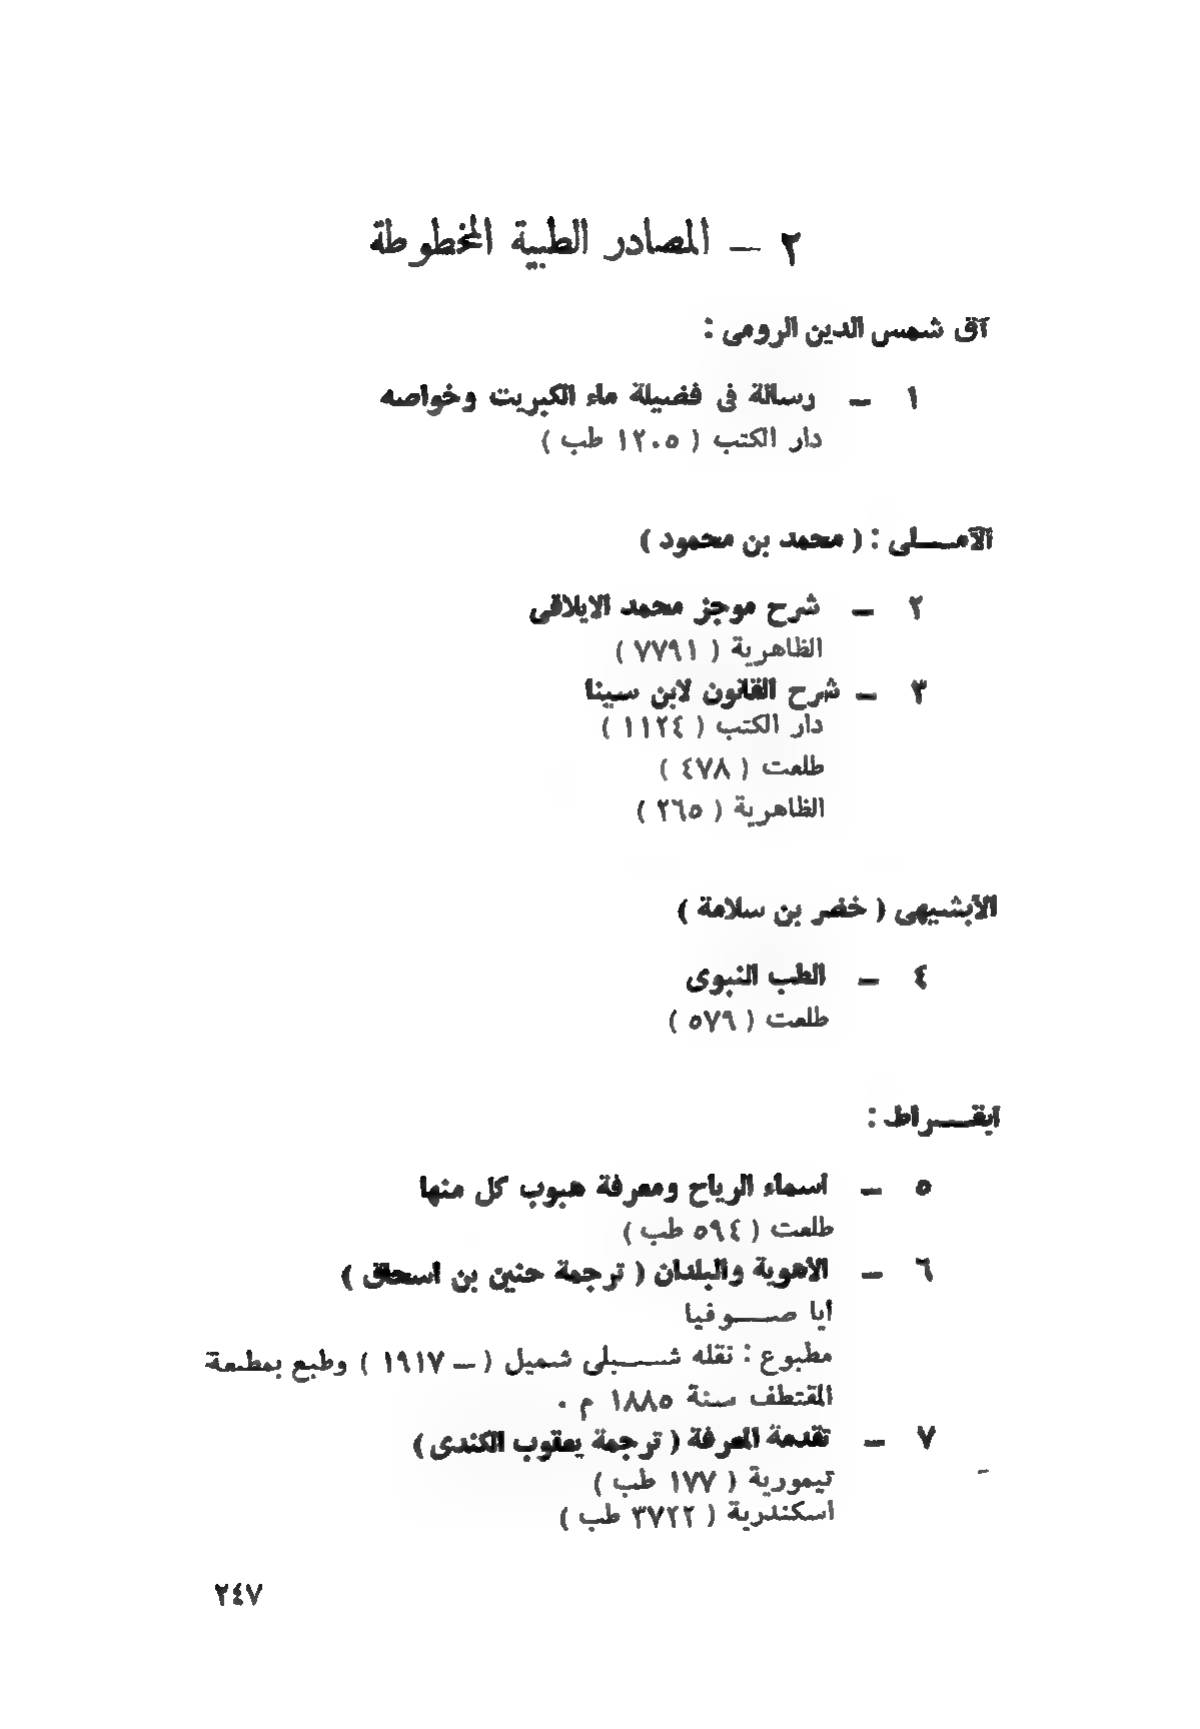 ٢ – المصادر الطبية المخطوطة
آق شمس الدين الرومى :
١ – رسالة فى فضيلة ماء الكبريت وخواصه
دار الكتب ( ١٢٠٥ طب )
الآملى : ( محمد بن محمود )
٢ – شرح موجز محمد الايلاقى
الظاهرية ( ٧٧٩١ )
٣ – شرح القانون لابن سينا
دار الكتب ( ١١٢٤ )
طلعت ( ٤٧٨ )
الظاهرية ( ٢٦٥ )
الأبشيهى ( خضر بن سلامة )
٤ – الطب النبوى
طلعت ( ٥٧٩ )
ابقراط :
٥ – اسماء الرياح ومعرفة هبوب كل منها
طلعت ( ٥٩٤ طب )
٦ – الأهوية والبلدان ( ترجمة حنين بن اسحاق )
أيا صوفيا
مطبوع : نقله شبلى شميل ( – ١٩١٧ ) وطبع بمطبعة
المقتطف سنة ١٨٨٥ م .
٧ – تقدمة المعرفة ( ترجمة يعقوب الكندى )
تيمورية ( ١٧٧ طب )
اسكندرية ( ٣٧٢٢ طب )
٢٤٧